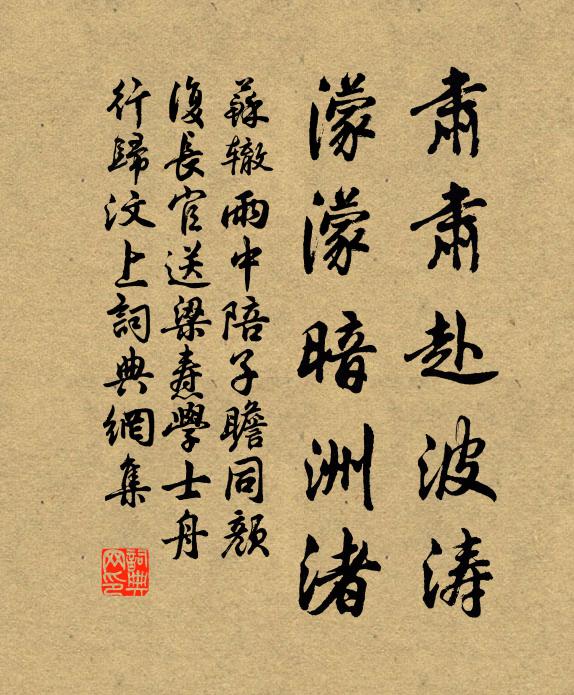 肅肅赴波濤
濛濛暗洲渚
蘇辙雨中陪子瞻同顏
復長官送梁燾學士舟
行歸汶上詞典網集
詞典
网印